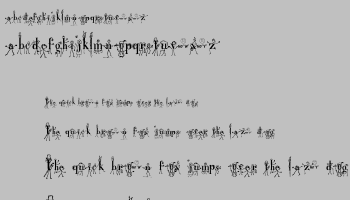 abcdefghijklmnopqrstuvwxyz
abcdefghijklmnopqrstuvwxyz
The quick brown fox jumps over the lazy dog
The quick brown fox jumps over the lazy dog
The quick brown fox jumps over the lazy dog